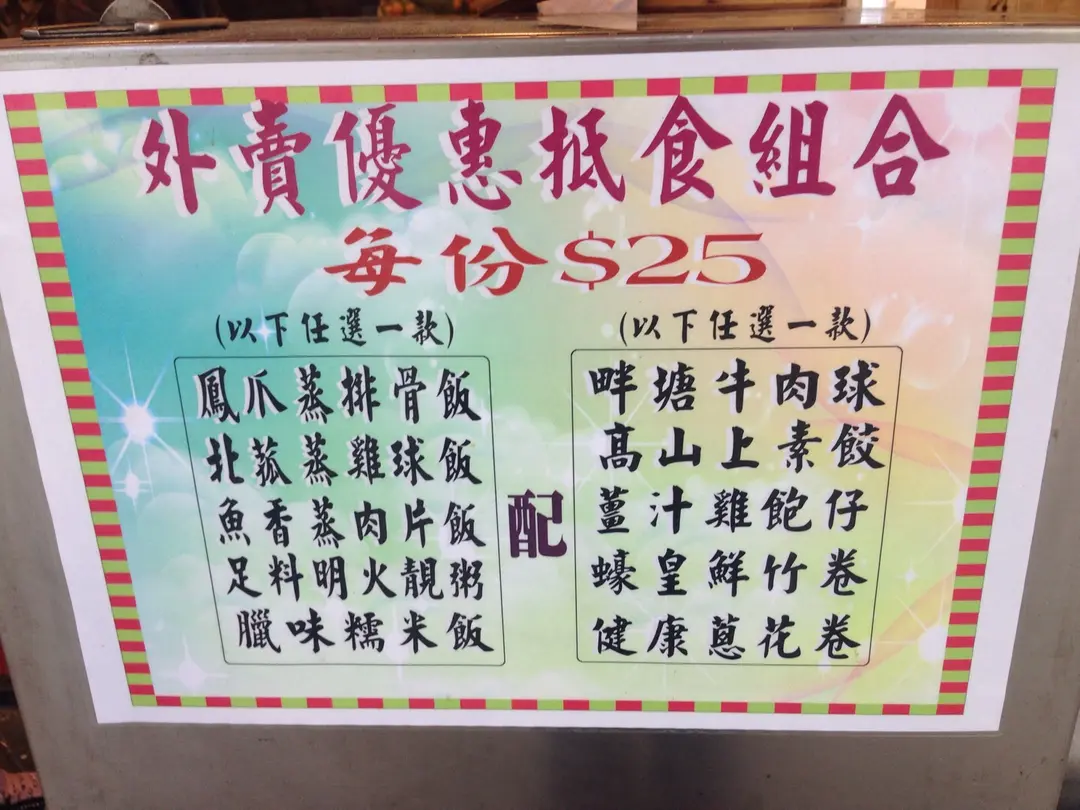 外賣優惠抵食組合
每份$25
(以下任選一款)
鳳爪蒸排骨飯
北菰蒸雞球飯
魚香蒸肉片飯
足料明火靚粥
臘味糯米飯
配
(以下任選一款)
畔塘牛肉球
高山上素餃
薑汁雞飽仔
蠔皇鮮竹卷
健康蔥花卷